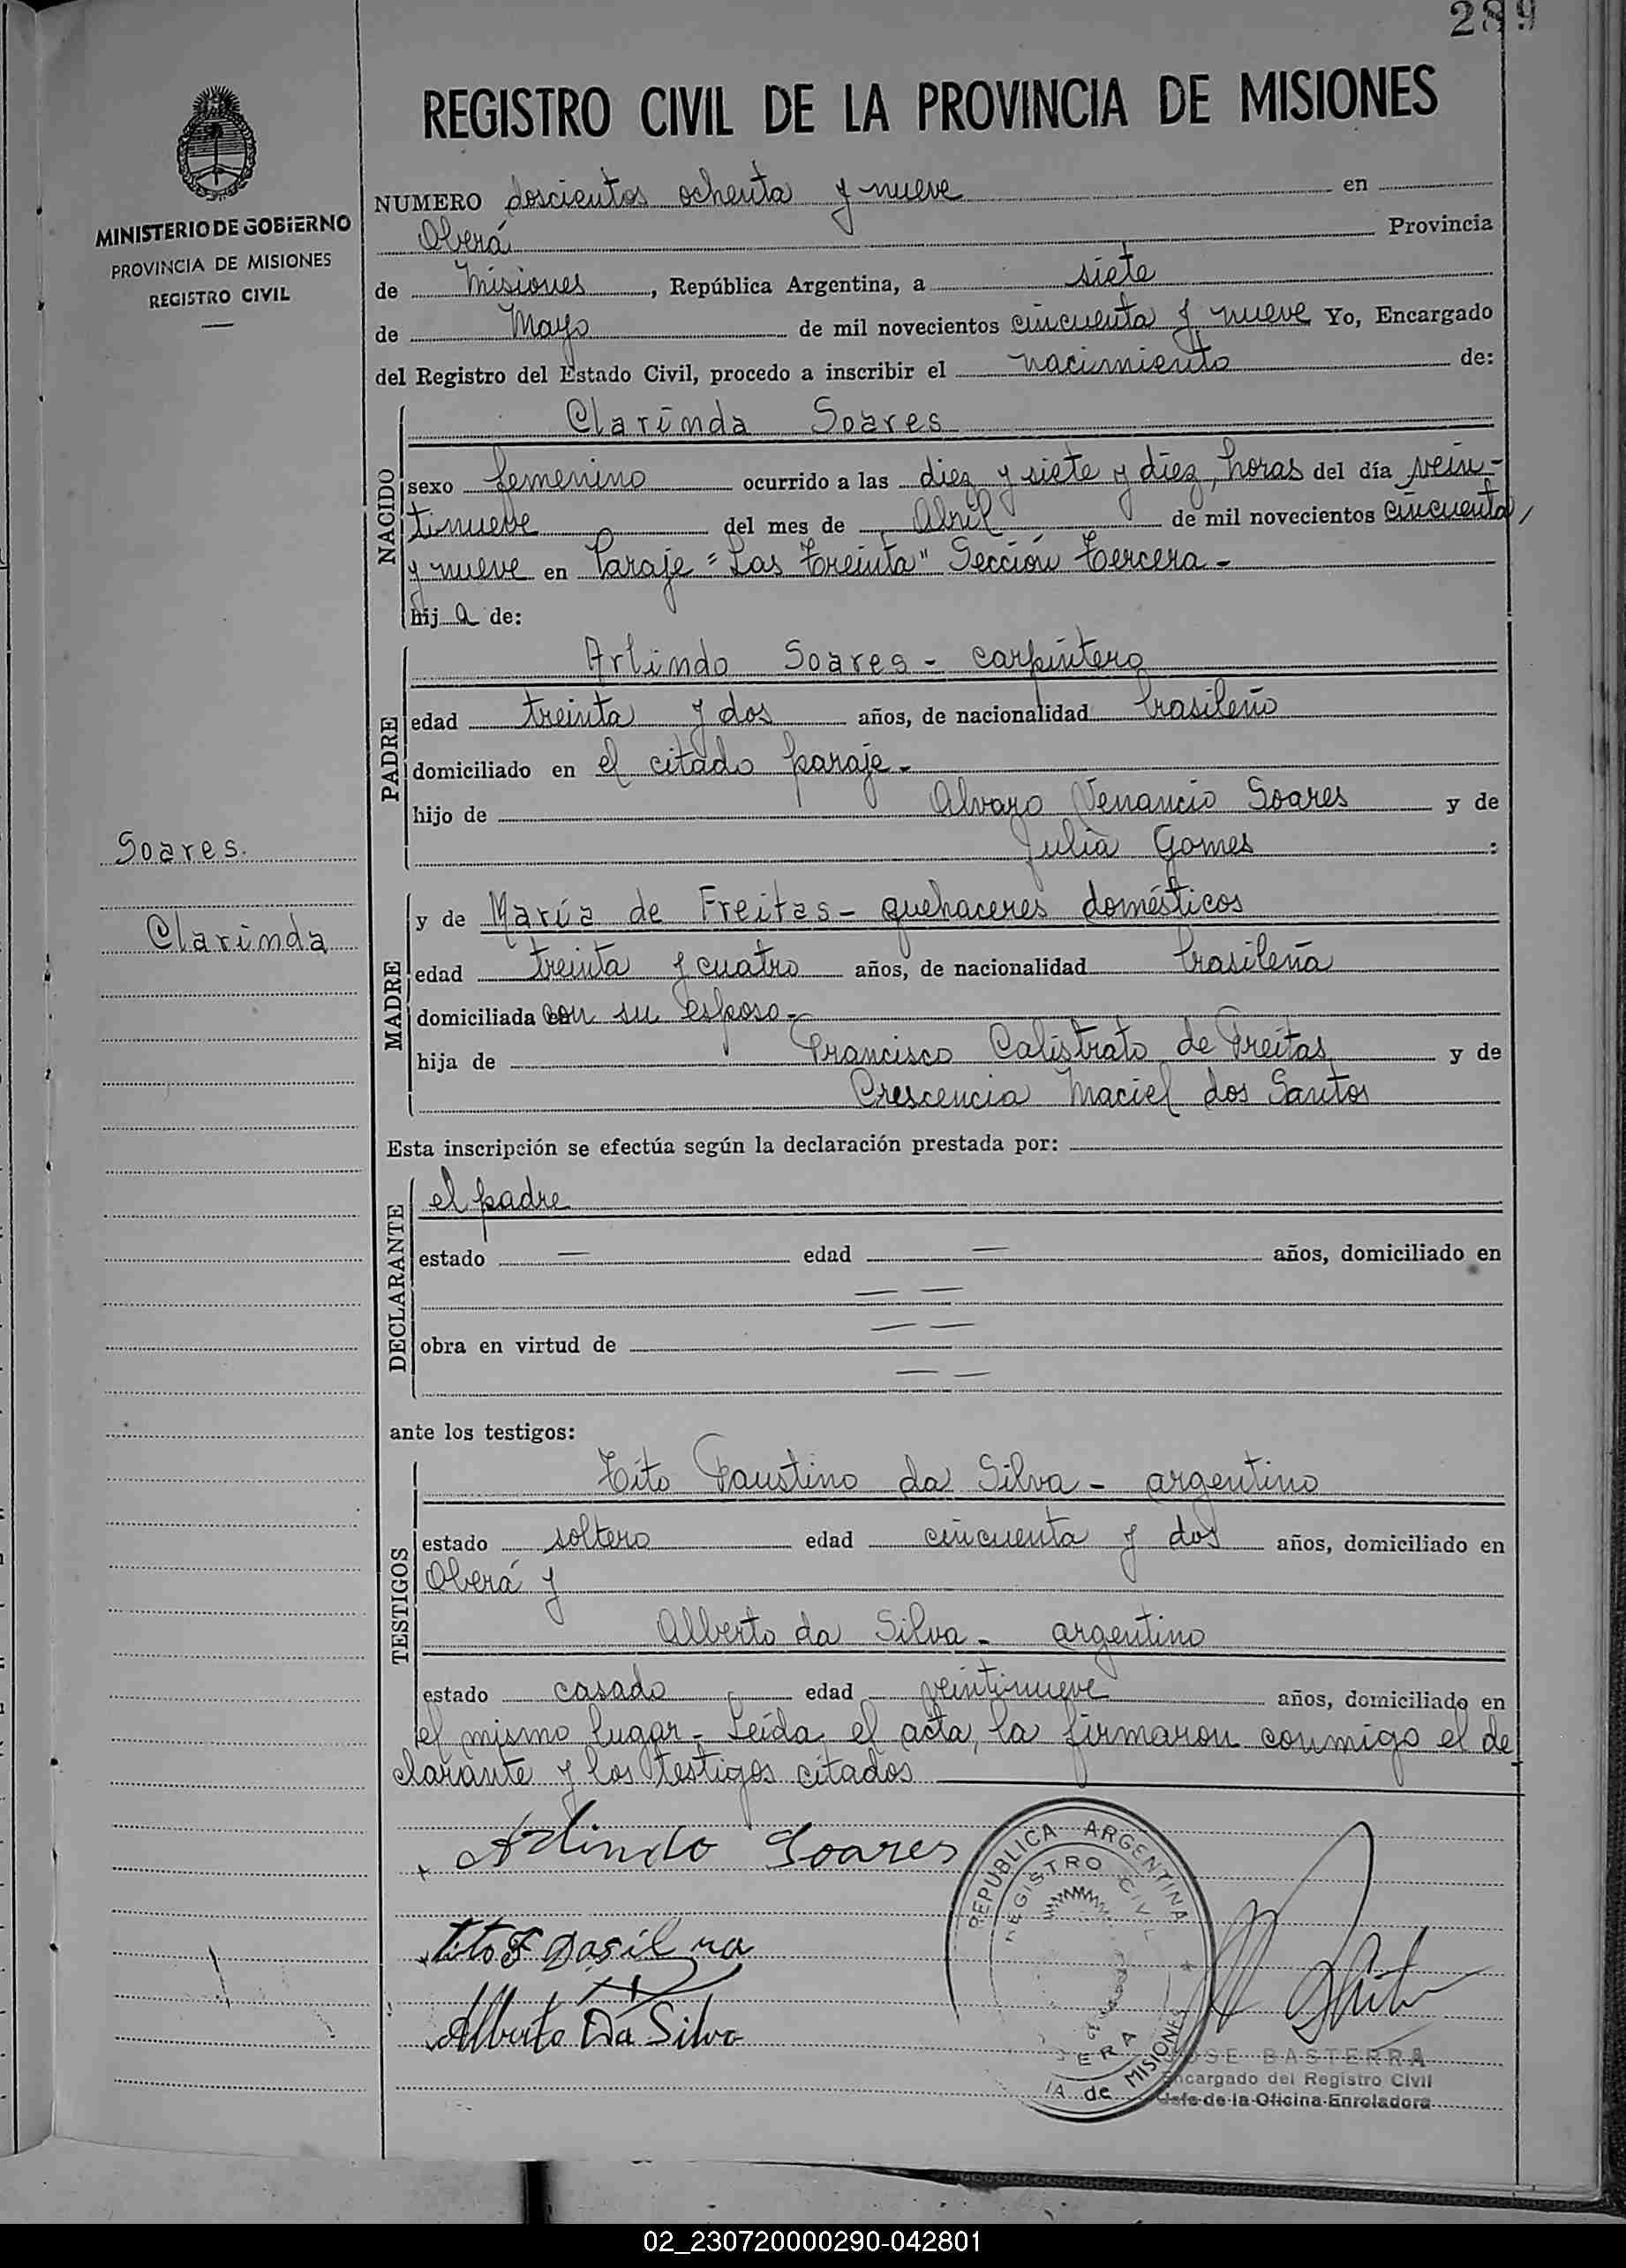 289
REGISTRO CIVIL DE LA PROVINCIA DE MISIONES
MINISTERIO DE GOBIERNO
PROVINCIA DE MISIONES
REGISTRO CIVIL
NUMERO doscientos ochenta y nueve en
Oberá Provincia
de Misiones, República Argentina, a siete
de Mayo de mil novecientos cincuenta y nueve Yo, Encargado
del Registro del Estado Civil, procedo a inscribir el nacimiento de:
NACIDO
Clarinda Soares
sexo femenino ocurrido a las diez y siete y diez, horas del día vein-
tinueve del mes de Abril de mil novecientos cincuenta
y nueve en Paraje "Las Treinta" Sección Tercera -
hij a de:
PADRE
Arlindo Soares - carpintero
edad treinta y dos años, de nacionalidad brasileño
domiciliado en el citado paraje -
hijo de Alvaro Venancio Soares y de
Julia Gomes :
Soares.
Clarinda
MADRE
y de María de Freitas - quehaceres domésticos
edad treinta y cuatro años, de nacionalidad brasileña
domiciliada con su esposo -
hija de Francisco Calistrato de Freitas y de
Crescencia Maciel dos Santos
Esta inscripción se efectúa según la declaración prestada por:
DECLARANTE
el padre
estado — edad — años, domiciliado en
— —
obra en virtud de — —
— —
ante los testigos:
TESTIGOS
Tito Faustino da Silva - argentino
estado soltero edad cincuenta y dos años, domiciliado en
Oberá y
Alberto da Silva - argentino
estado casado edad veintinueve años, domiciliado en
el mismo lugar - Leída el acta, la firmaron conmigo el de
clarante y los testigos citados
Arlindo Soares
Tito F Dasilva
Alberto Da Silva
REPUBLICA ARGENTINA
REGISTRO CIVIL
ERA
IA de MISIONES
JOSE BASTERRA
Encargado del Registro Civil
Jefe de la Oficina Enroladora
02_230720000290-042801